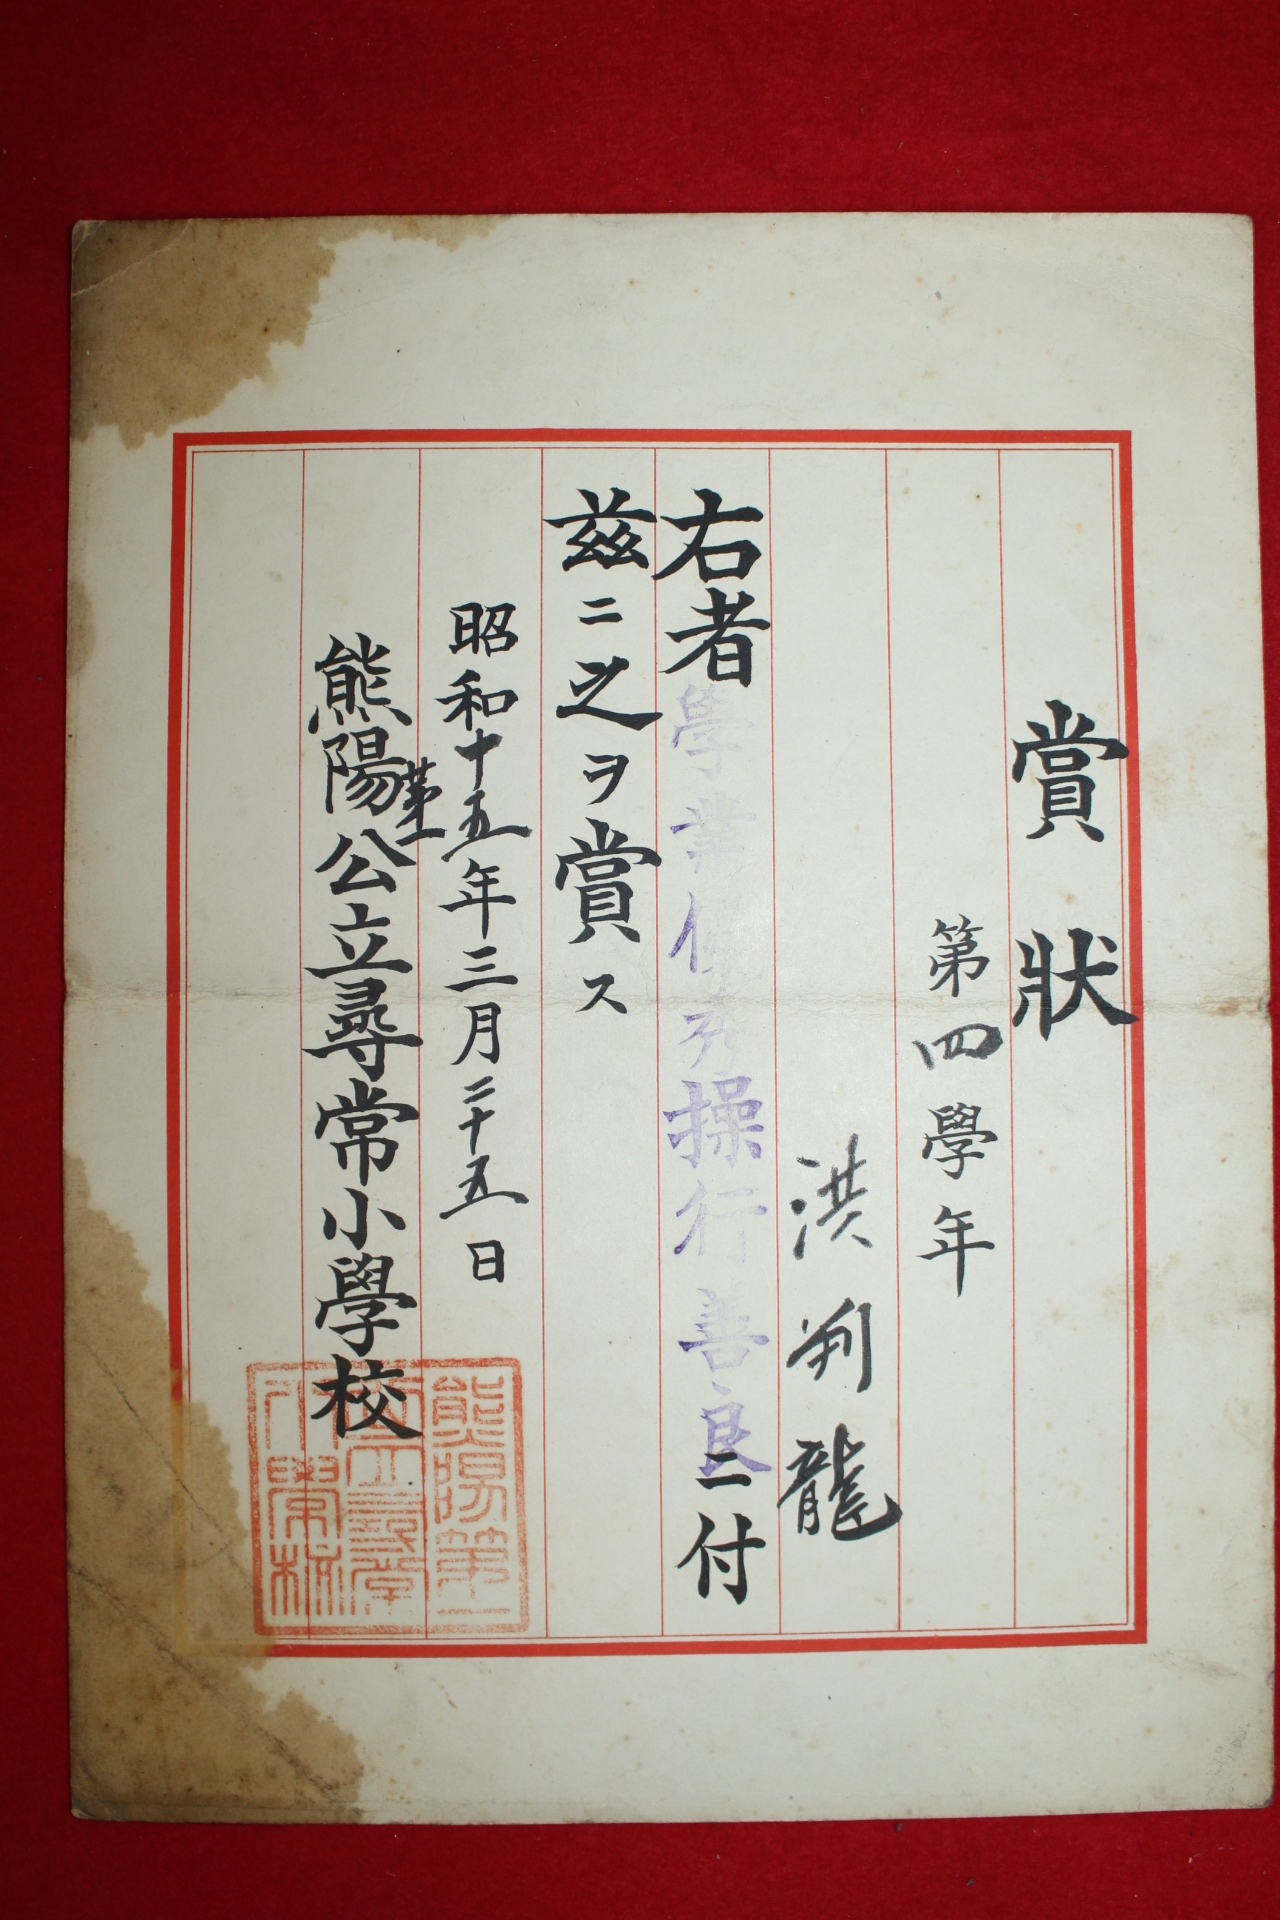 賞狀
第四學年
洪 龍
右者學業優秀操行善良ニ付
茲ニ之ヲ賞ス
昭和十五年三月二十五日
熊陽第一公立尋常小學校
熊陽第一
公立尋常
小學校